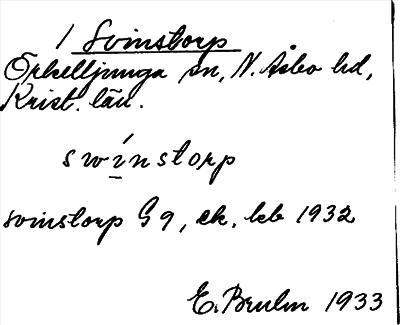 1 Svinstorp
Örkelljunga sn, N. Åsbo hd,
Krist. län.
swínstorp
Svinstorp G 9, ek. kb 1932
E. Bruhn 1933